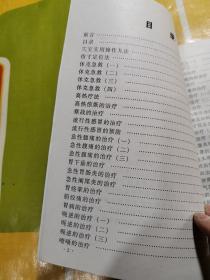 目
前言
目录
三宝实用操作方法
指寸定位法
休克急救（一）
休克急救（二）
休克急救（三）
休克急救（四）
高热疗法
高热惊厥的治疗
寒战的治疗
流行性感冒的治疗
流行性感冒的预防
急性腹痛的治疗（一）
急性腹痛的治疗（二）
急性腹痛的治疗（三）
胃下垂的治疗
急性胃肠炎的治疗
急性阑尾炎的治疗
胃痉挛的治疗
胆绞痛的治疗
胃病的治疗
呃逆的治疗（一）
呃逆的治疗（二）
呃逆的治疗（三）
嗝嗝的治疗